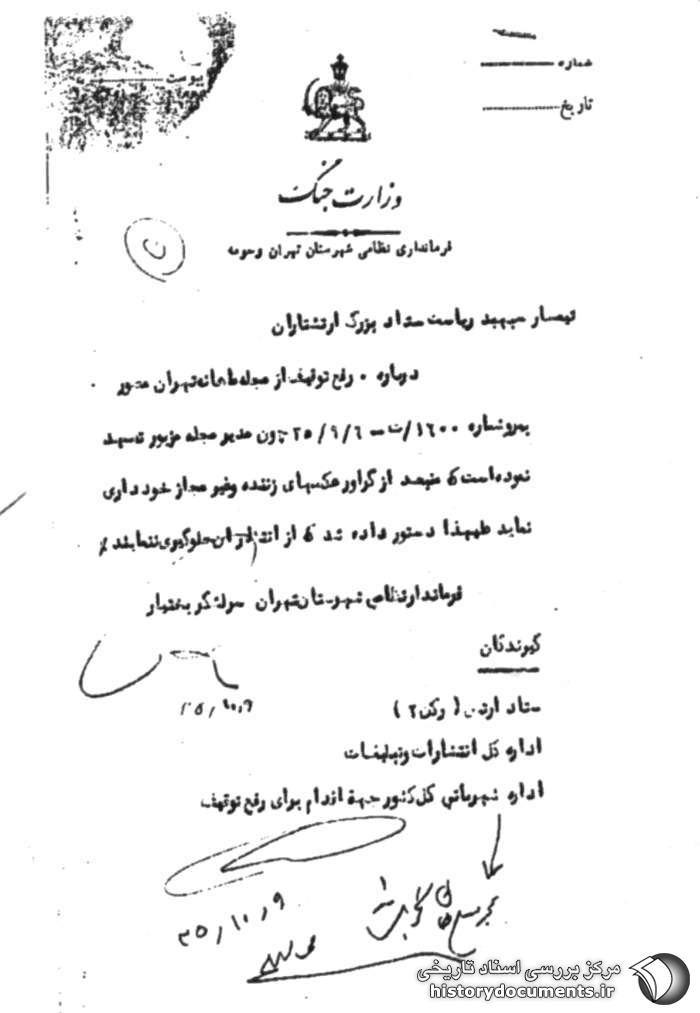 شماره
تاریخ
پیوست
وزارت جنگ
فرمانداری نظامی شهرستان تهران و حومه
ن
تیمسار سپهبد ریاست ستاد بزرگ ارتشتاران
درباره ۰ رفع توقیف از مجله ماهانه تهران مصور
پیرو شماره ۱۶۰۰/ت ــ ۳۵/۹/۶ چون مدیر مجله مزبور تعهد
نموده است که منبعد از گراور عکسهای زننده و غیر مجاز خودداری
نماید علیهذا دستور داده شد که از انتشار آن جلوگیری ننمایند ٪
فرماندار نظامی شهرستان تهران سرلشگر بختیار
۳۵/۱۰/۹
گیرندگان
ستاد ارتش (رکن ۲)
اداره کل انتشارات و تبلیغات
اداره شهربانی کل کشور جهة اقدام برای رفع توقیف
۳۵/۱۰/۹
مرکز بررسی اسناد تاریخی
historydocuments.ir